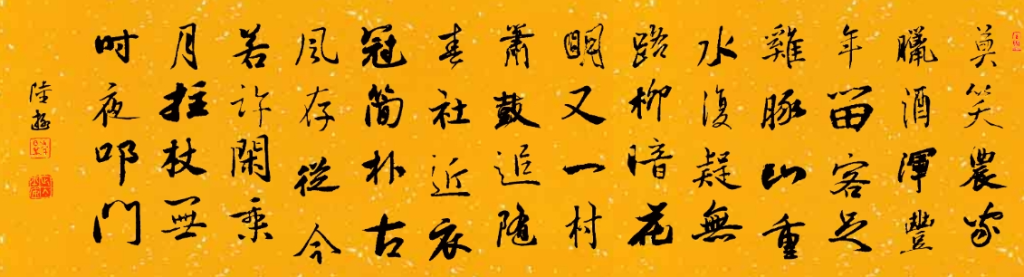 莫笑農家
臘酒渾豐
年留客足
雞豚山重
水復疑無
路柳暗花
明又一村
蕭鼓追隨
春社近衣
冠簡朴古
風存從今
若許閑乘
月拄杖無
时夜叩門
陸游